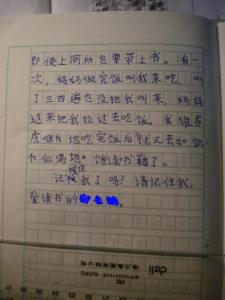 即使上厕所也要带上书。有一
次，妈妈做完饭叫我来吃，叫
了三四遍也没把我叫来，妈妈
过来把我拉过去吃饭。我狼吞
虎咽地吃完饭后就又去如饥
似渴地饱读书籍了。
记住我了吗？请记住我，
爱读书的
deli